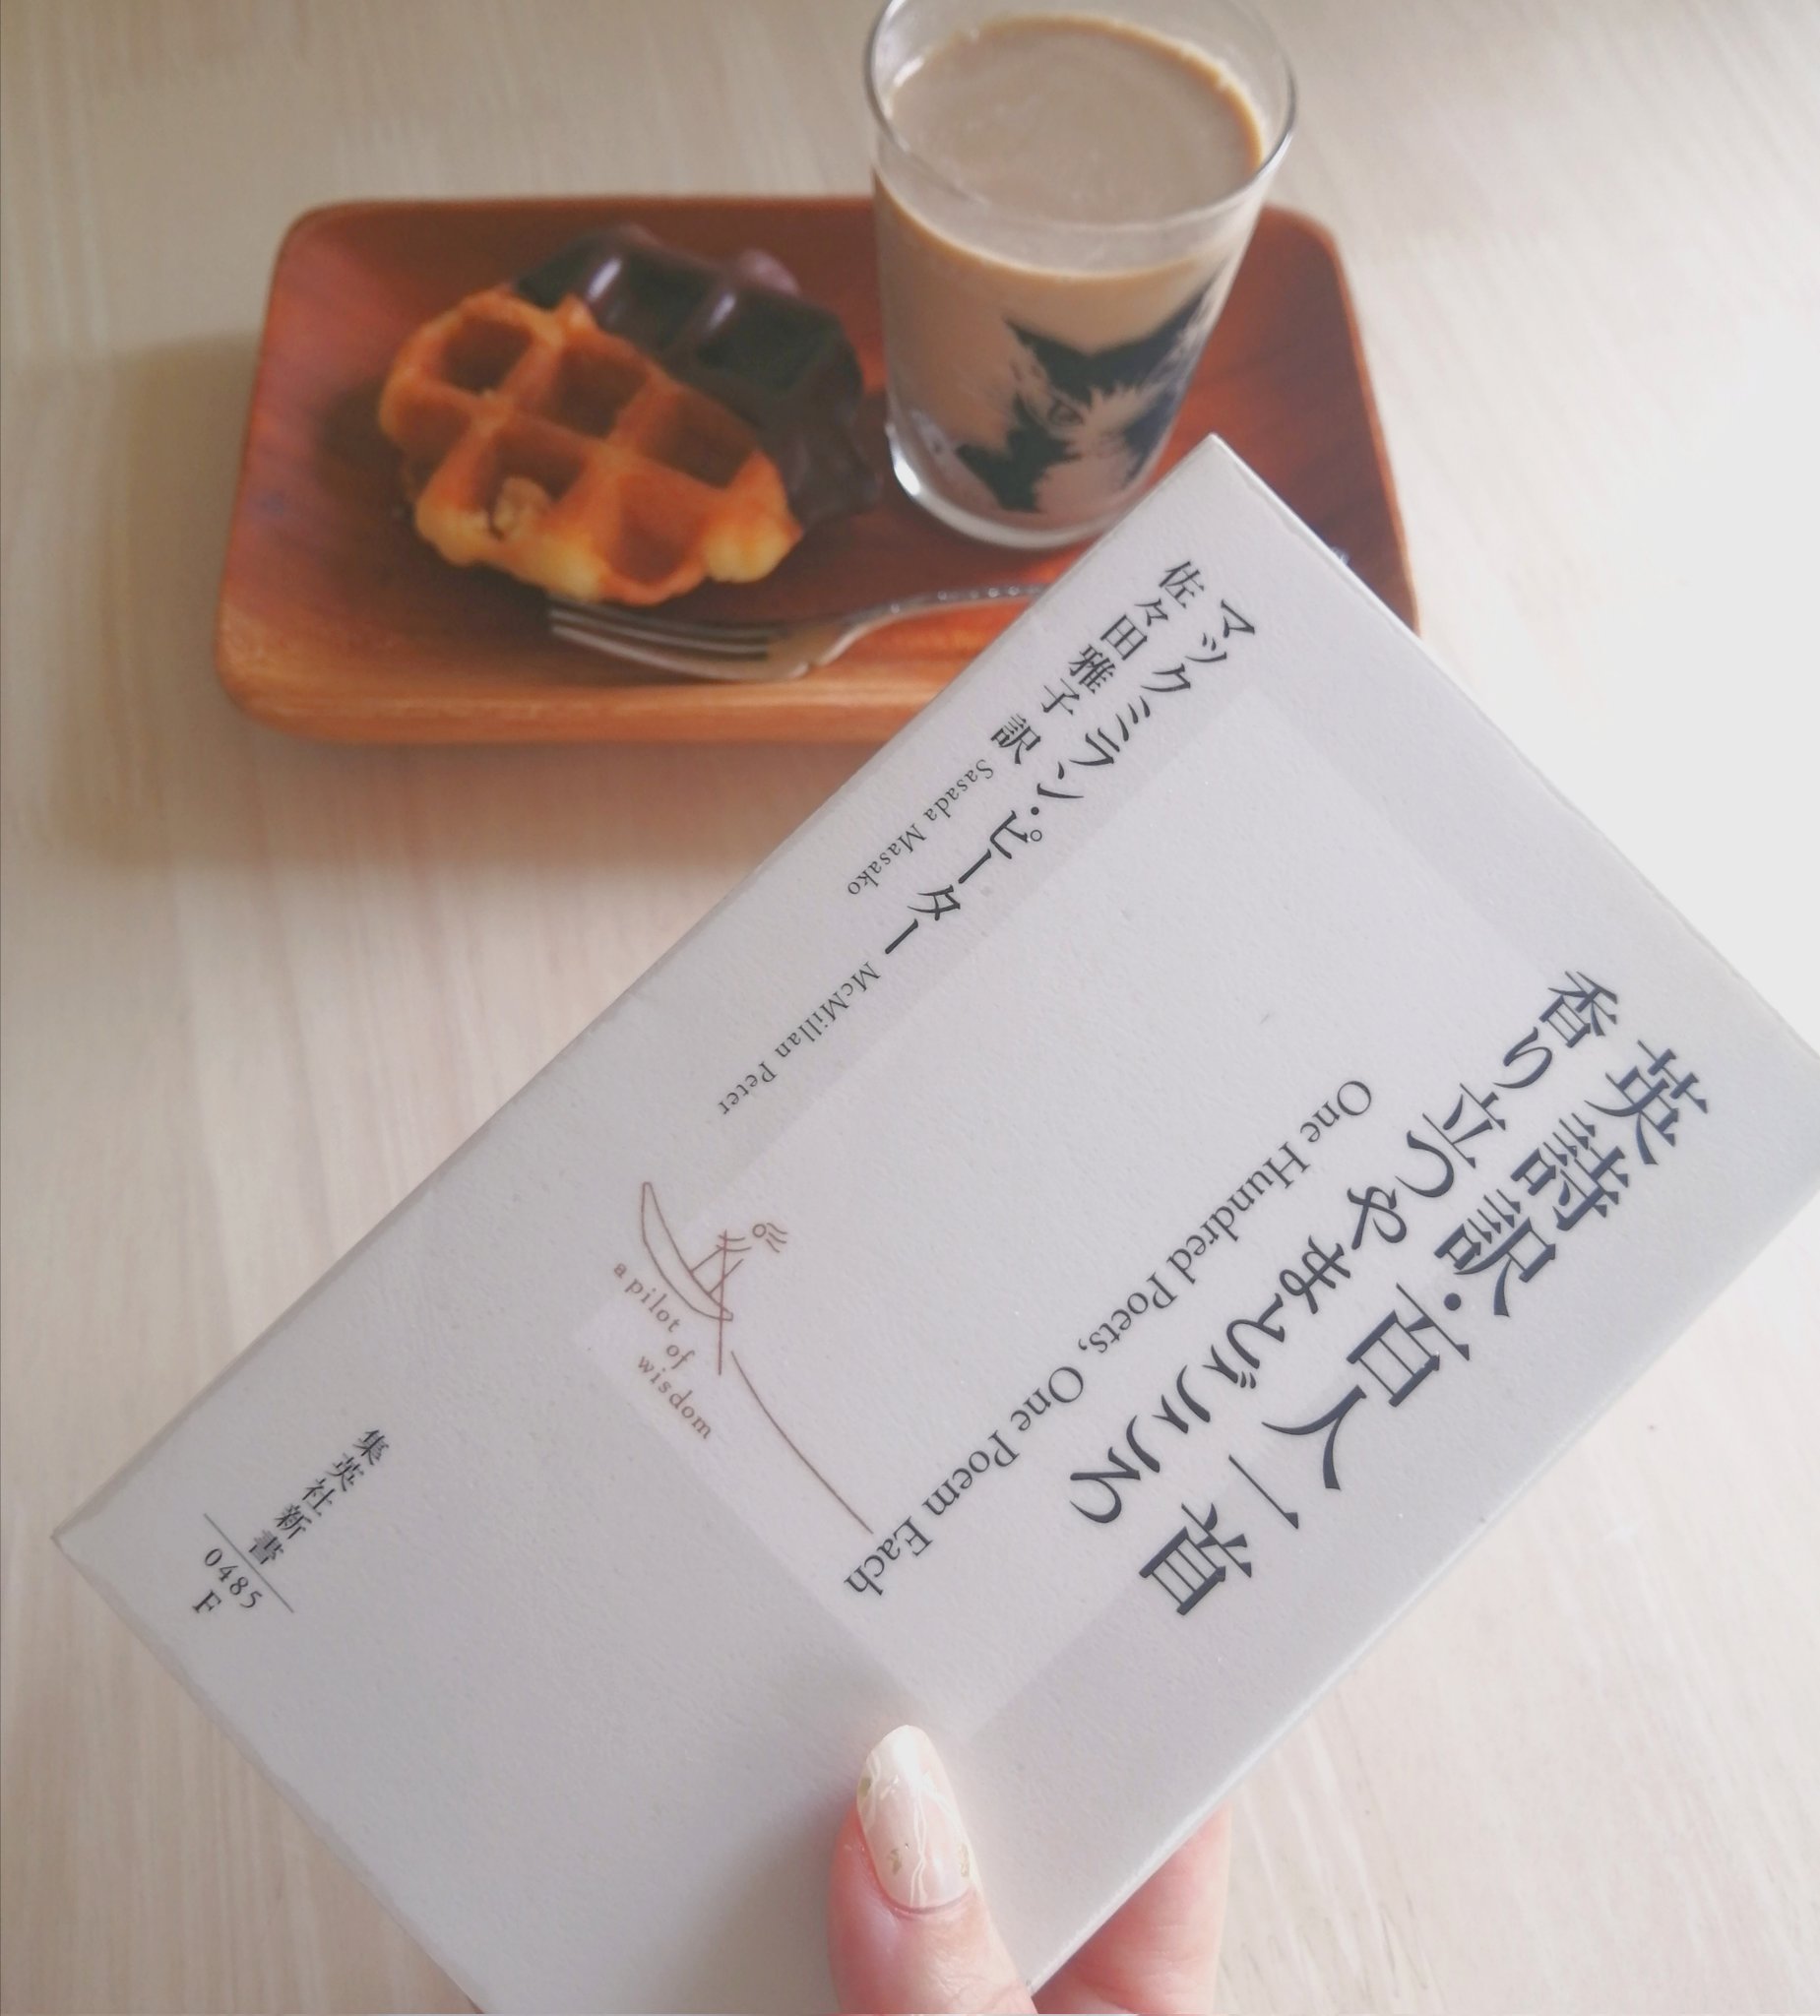 英詩訳・百人一首
香り立つやまとごころ
One Hundred Poets, One Poem Each
マックミラン・ピーター McMillan Peter
佐々田雅子 訳 Sasada Masako
a pilot of wisdom
集英社新書
0485
F